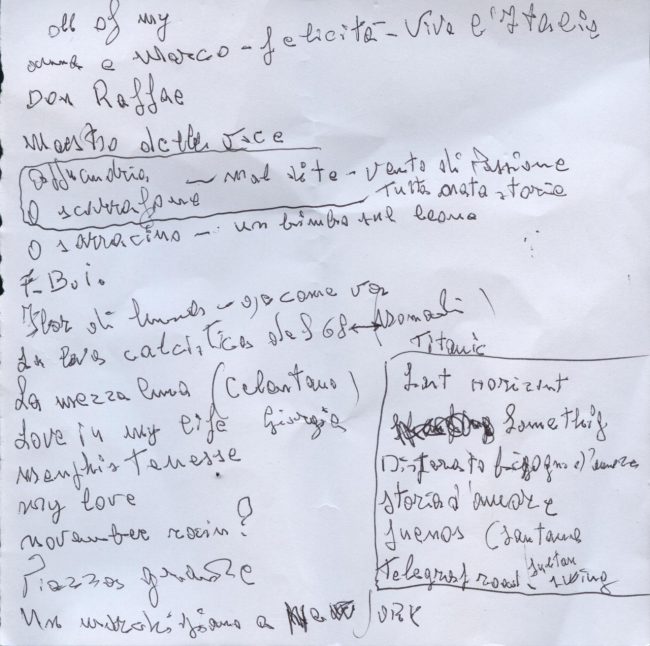 all of my
anna e Marco - felicità - Viva l'Italia
Don Raffae
maestro della voce
mal di te - vento di Passione
O scarrafone
Tutta nata storie
O sarracino - un bimbo sul leone
F. Boi.
Flor di luna - oye como va
La leva calcistica del 68 Domani
La mezza luna (Celentano)
Titanic
Love in my life Giorgia
menphis Tenesse
my love
november rain?
Piazza grande
Un marakisiano a New York
Lost horizont
Somethig
Disperato bisogno d'amore
storia d'amore
fuenos (santana
Telegraf road sultan swing